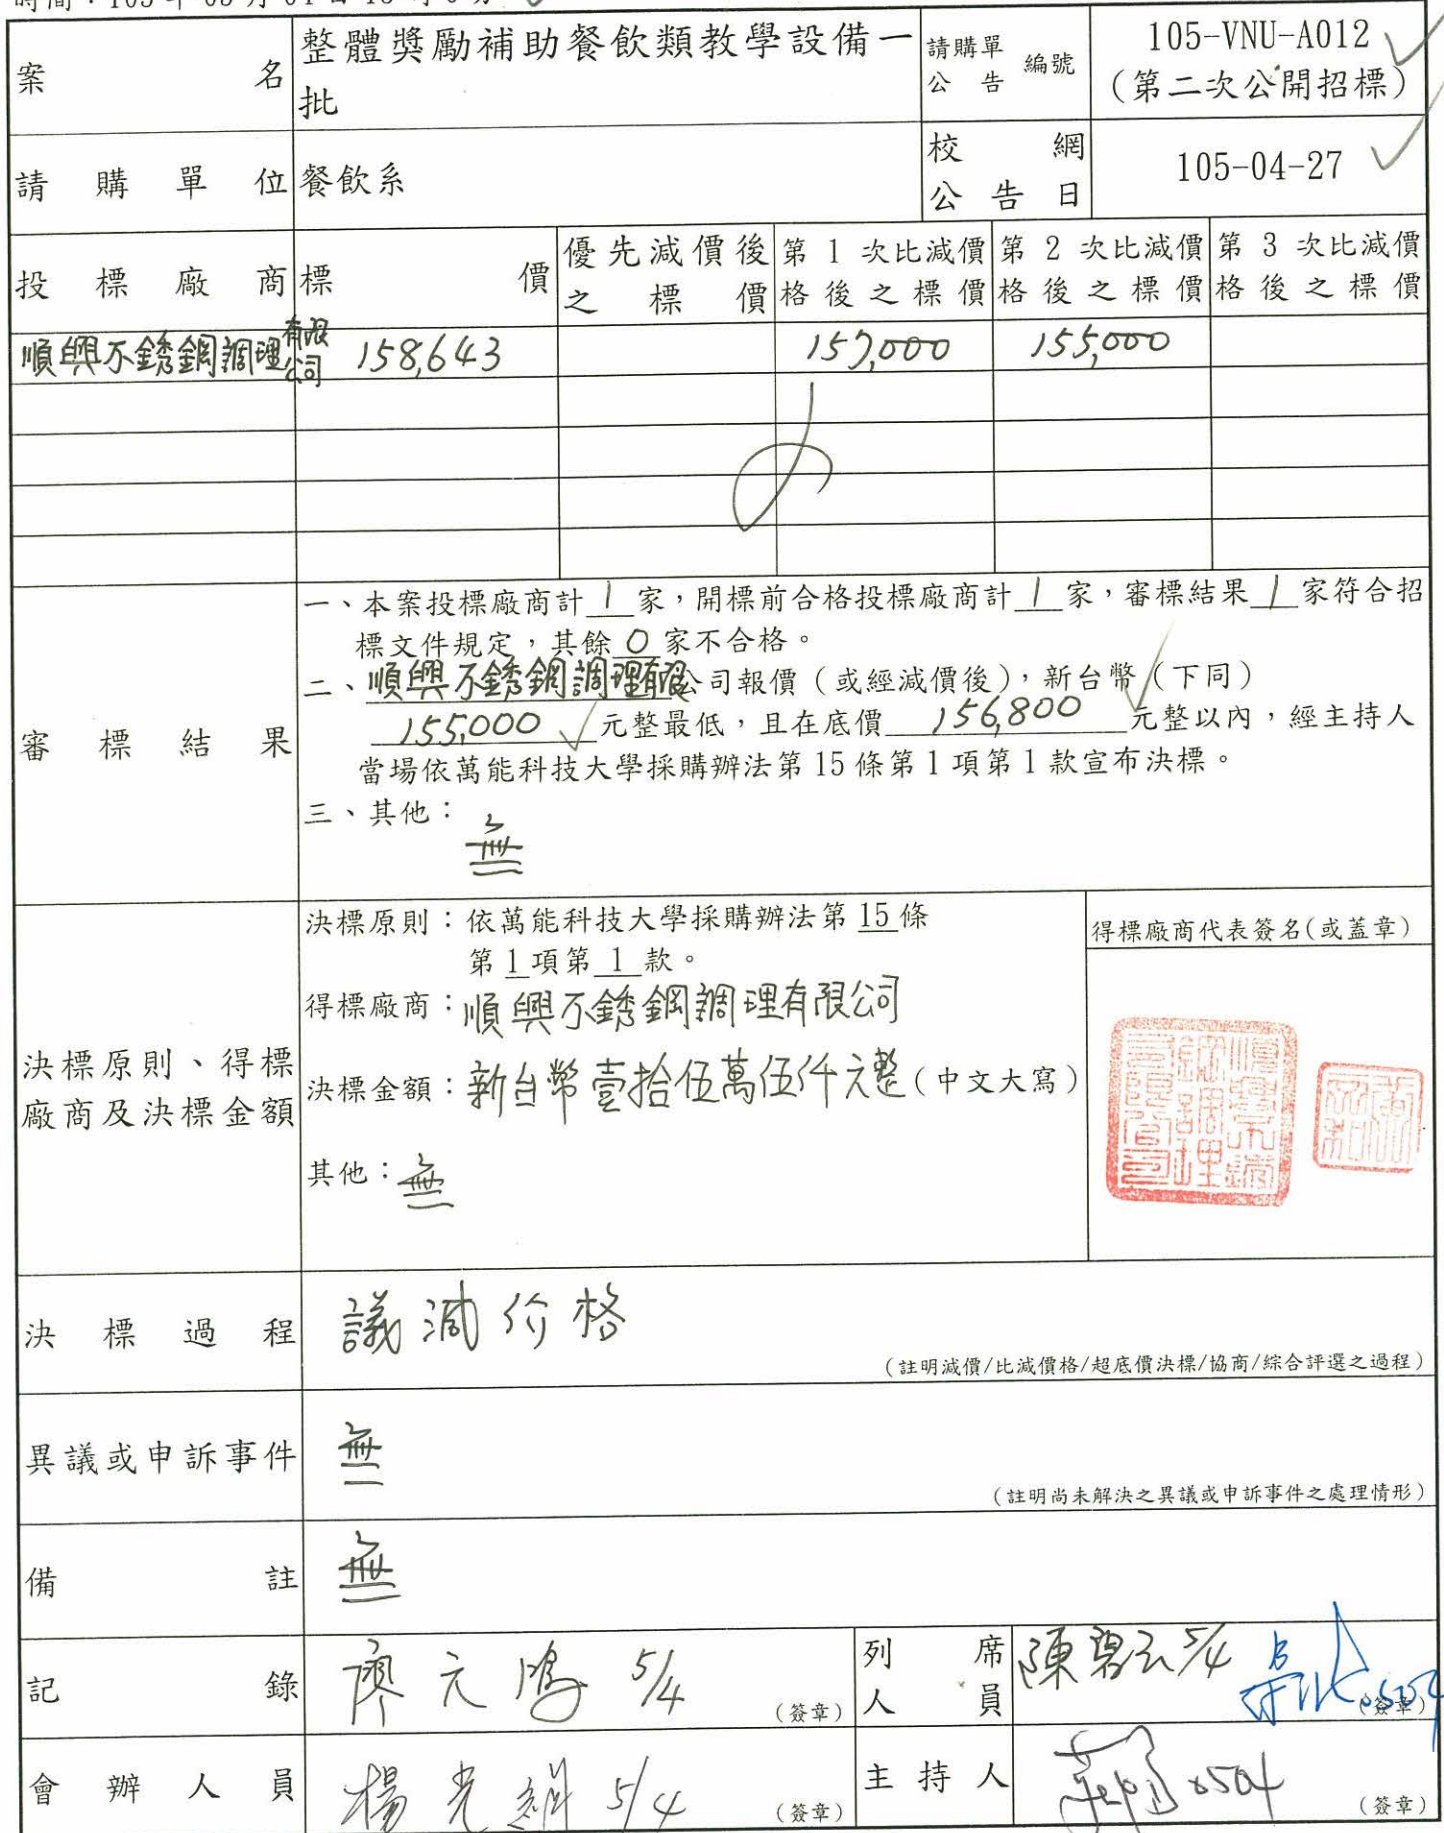 案名 整體獎勵補助餐飲類教學設備一
批
請購單
公告 編號
105-VNU-A012
(第二次公開招標)
請購單位 餐飲系
校網
公告日
105-04-27
投標廠商 標價
優先減價後
之標價
第1次比減價
格後之標價
第2次比減價
格後之標價
第3次比減價
格後之標價
順興不銹鋼調理有限公司 158,643 157,000 155,000
審標結果
一、本案投標廠商計 1 家,開標前合格投標廠商計 1 家,審標結果 1 家符合招
標文件規定,其餘 0 家不合格。
二、順興不銹鋼調理有限公司報價(或經減價後),新台幣(下同)
155,000 元整最低,且在底價 156,800 元整以內,經主持人
當場依萬能科技大學採購辦法第15條第1項第1款宣布決標。
三、其他:
無
決標原則、得標
廠商及決標金額
決標原則:依萬能科技大學採購辦法第 15 條
第 1 項第 1 款。
得標廠商:順興不銹鋼調理有限公司
決標金額:新台幣壹拾伍萬伍仟元整(中文大寫)
其他:無
得標廠商代表簽名(或蓋章)
決標過程 議減价格
(註明減價/比減價格/超底價決標/協商/綜合評選之過程)
異議或申訴事件 無
(註明尚未解決之異議或申訴事件之處理情形)
備註 無
記錄 廖元鴻 5/4 (簽章)
列席
人員
陳碧云 5/4 (簽章)
會辦人員 楊光 5/4 (簽章)
主持人 0504 (簽章)